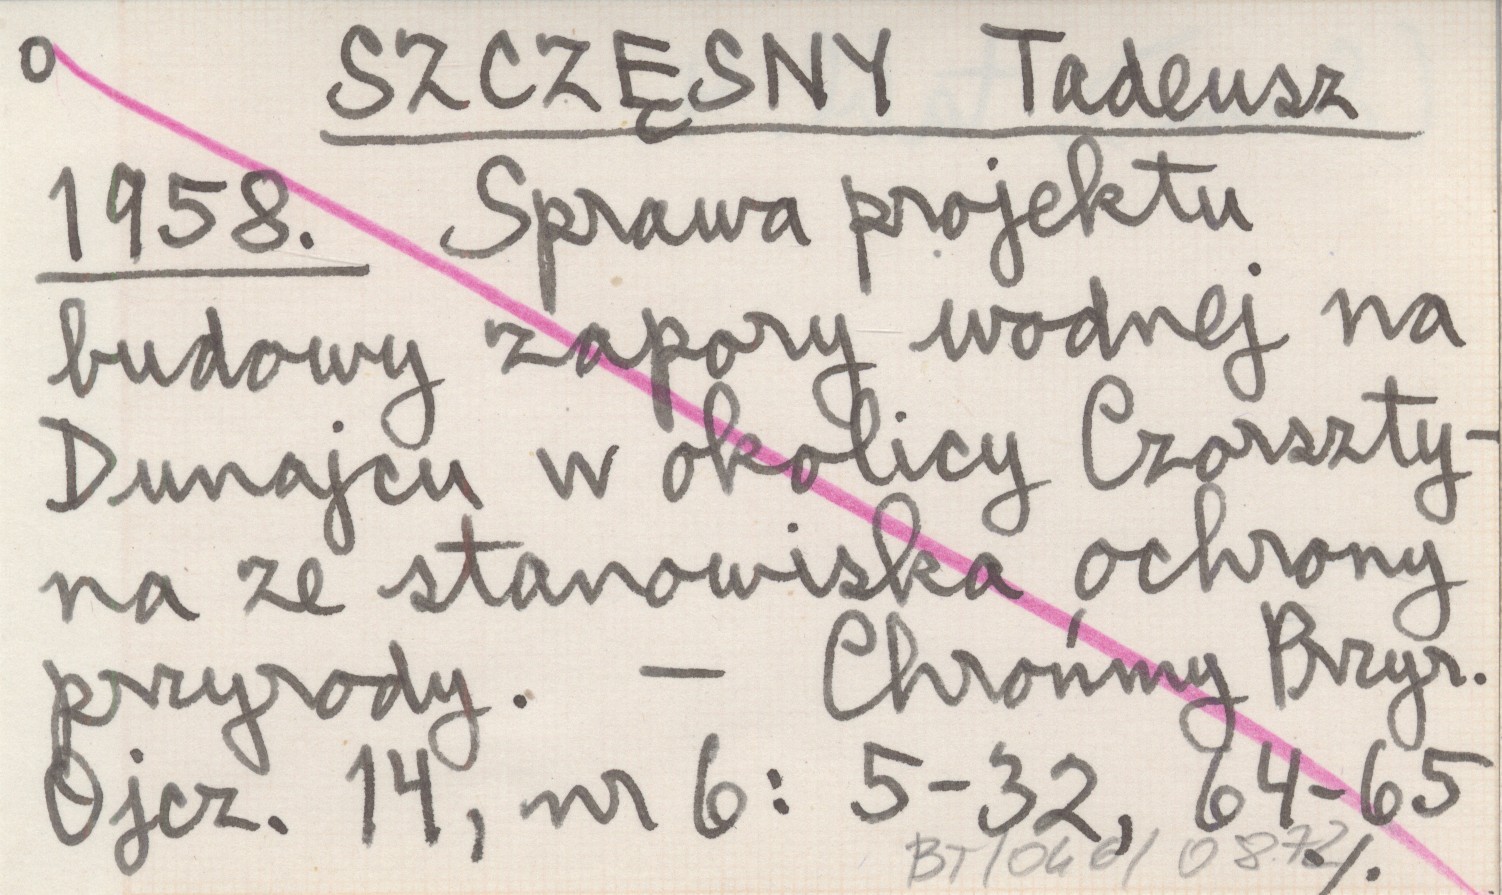 o SZCZĘSNY Tadeusz
1958. Sprawa projektu
budowy zapory wodnej na
Dunajcu w okolicy Czorszty-
na ze stanowiska ochrony
przyrody. — Chrońmy Przyr.
Ojcz. 14, nr 6: 5-32, 64-65
./.